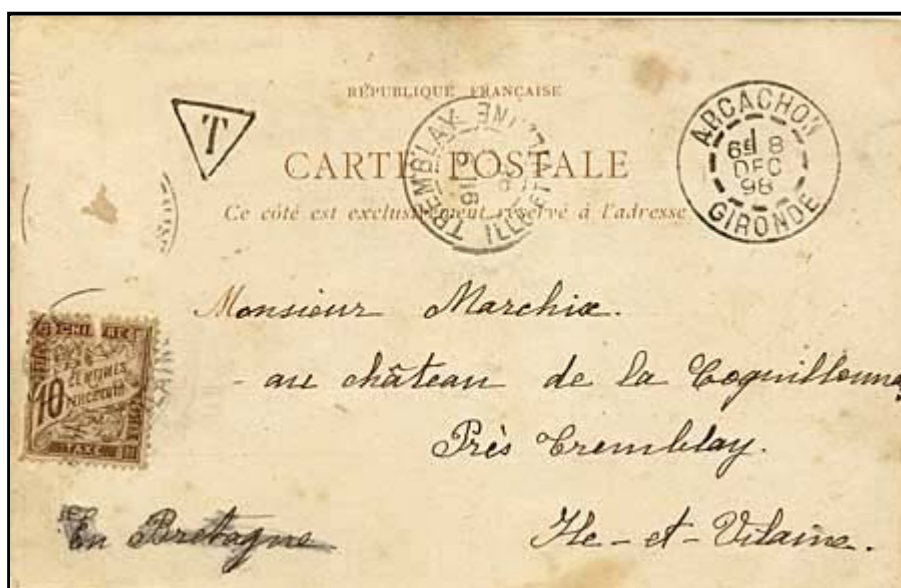 RÉPUBLIQUE FRANÇAISE
T
CARTE POSTALE
Ce côté est exclusivement réservé à l'adresse
TREMBLAY
ILLE ET VILAINE
ARCACHON
8
DEC
98
GIRONDE
Monsieur Marchix.
au château de la Coquillonnai
Près Tremblay.
Ile-et-Vilaine.
En Bretagne
10
CENTIMES
À PERCEVOIR
TAXE